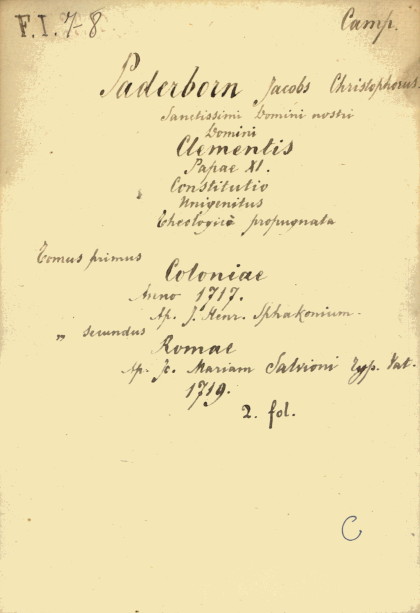 F. I. 7-8
Camp.
Paderborn Jacobs Christophorus.
Sanctissimi Domini nostri
Domini
Clementis
Papae XI.
Constitutio
Unigenitus
theologicè propugnata
Tomus primus
Coloniae
Anno 1717.
Ap. J. Henr. Sphakonium.
„ secundus
Romae
Ap. Jo. Mariam Salvioni Typ. Vat.
1719.
2. fol.
C